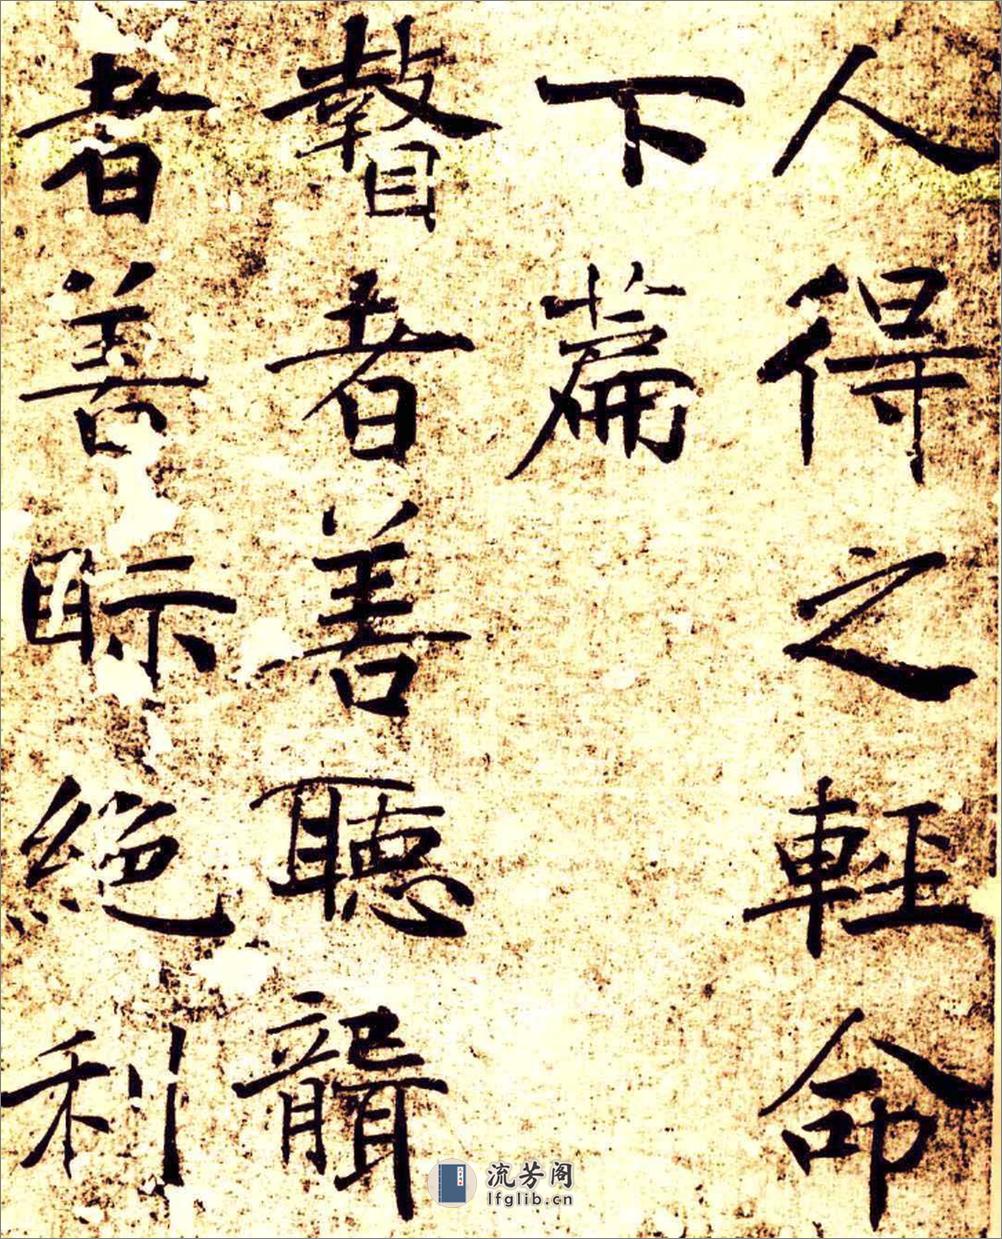 人得之輕命
下篇
瞽者善聽聾
者善眎絕利
流芳阁
lfglib.cn